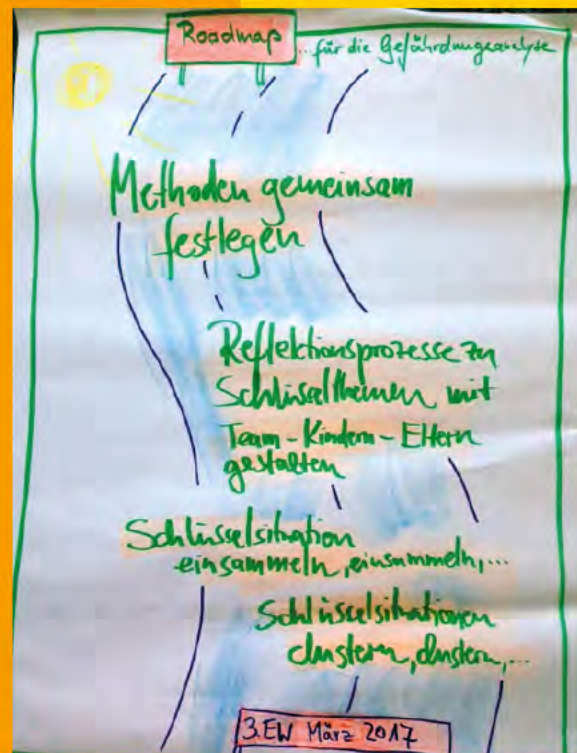 Roadmap
...für die Gefährdungsanalyse
Methoden gemeinsam
festlegen
Reflektionsprozesse zu
Schlüsselthemen mit
Team - Kindern - Eltern
gestalten
Schlüsselsituation
einsammeln, einsammeln,...
Schlüsselsituationen
clustern, clustern,...
3. EW März 2017